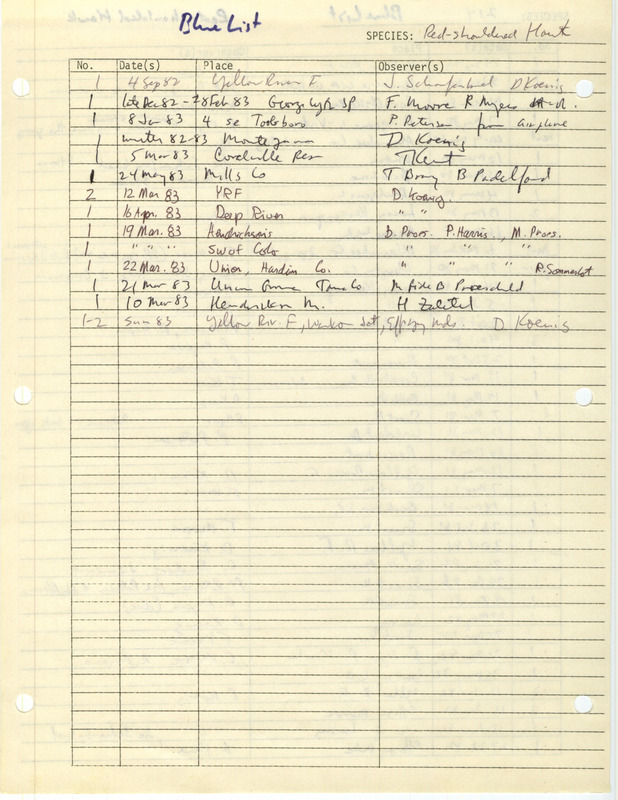 Blue List
SPECIES: Red-shouldered Hawk
No. Date(s) Place Observer(s)
1 4 Sep 82 Yellow River F D Koenig
1 late Dec 82 - 28 Feb 83 George Wyth SP F. Moore R Myers
1 8 Jan 83 4 se Toolsboro P. Petersen from airplane
1 winter 82-83 Montezuma D Koenig
1 5 Mar 83 Coralville Res T Kent
1 24 May 83 Mills Co T Bray B Padelford
2 12 Mar 83 YRF D Koenig
1 16 Apr. 83 Deep River " "
1 19 Mar. 83 Hendricksons D. Proes. P. Harris, M. Proes.
1 " " " SW of Colo
1 22 Mar. 83 Union, Hardin Co. " " "
1 21 Mar 83 Union Grove Tama Co B Proescholdt
1 10 Mar 83 Hendrickson M. H Zaletel
1-2 Sum 83 Yellow Riv. F, Effigy Mds. D Koenig